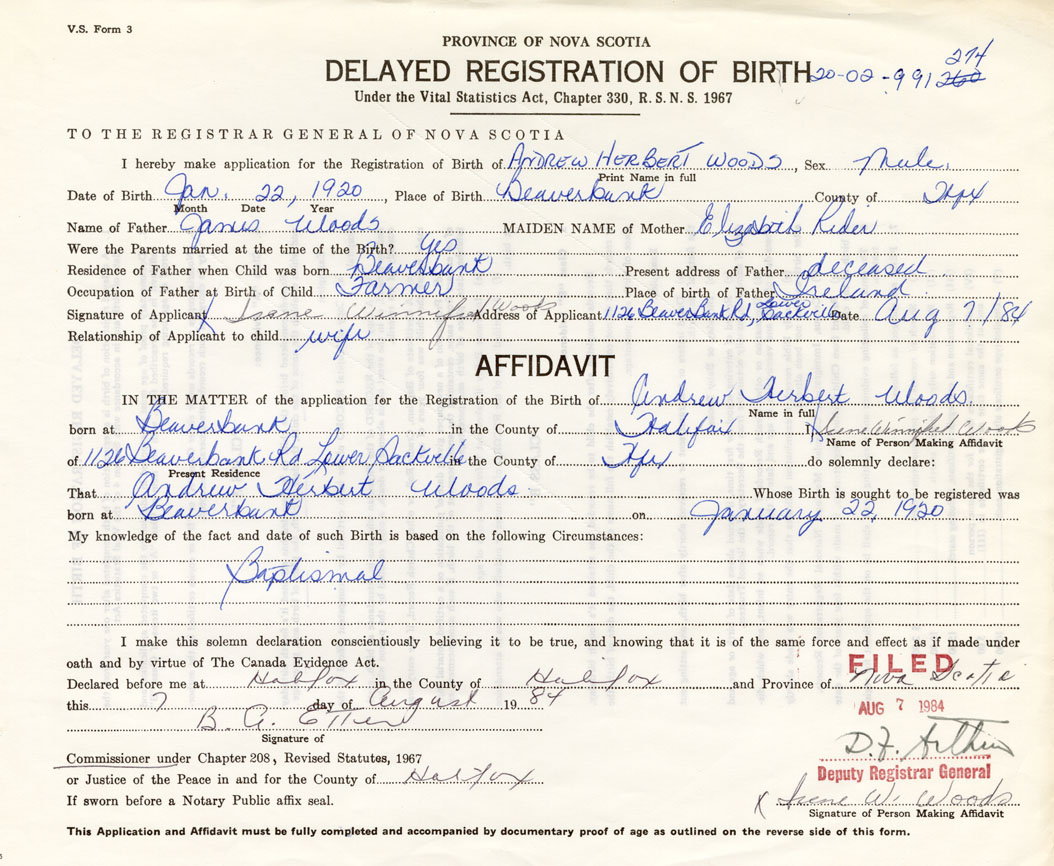 V.S. Form 3
PROVINCE OF NOVA SCOTIA
DELAYED REGISTRATION OF BIRTH 20-02-991260 274
Under the Vital Statistics Act, Chapter 330, R.S.N.S. 1967
TO THE REGISTRAR GENERAL OF NOVA SCOTIA
I hereby make application for the Registration of Birth of ANDREW HERBERT WOODS, Sex Male.
Print Name in full
Date of Birth Jan. 22, 1920, Place of Birth Beaverbank County of Hfx
Month Date Year
Name of Father James Woods MAIDEN NAME of Mother Elizabeth Rider
Were the Parents married at the time of the Birth? Yes
Residence of Father when Child was born Beaverbank Present address of Father deceased
Occupation of Father at Birth of Child Farmer Place of birth of Father Ireland
Signature of Applicant X Irene Winnifred Woods Address of Applicant 1126 Beaver Bank Rd, Lower Sackville Date Aug 7/84
Relationship of Applicant to child wife
AFFIDAVIT
IN THE MATTER of the application for the Registration of the Birth of Andrew Herbert Woods.
Name in full
born at Beaverbank in the County of Halifax I, Irene Winnifred Woods
Name of Person Making Affidavit
of 1126 Beaverbank Rd Lower Sackville in the County of Hfx do solemnly declare:
Present Residence
That Andrew Herbert Woods Whose Birth is sought to be registered was
born at Beaverbank on January 22, 1920
My knowledge of the fact and date of such Birth is based on the following Circumstances:
Baptismal
I make this solemn declaration conscientiously believing it to be true, and knowing that it is of the same force and effect as if made under
oath and by virtue of The Canada Evidence Act.
FILED
Declared before me at Halifax in the County of Halifax and Province of Nova Scotia
this 7 day of August 1984
AUG 7 1984
B. A. Etter
Signature of
D.F.
Commissioner under Chapter 208, Revised Statutes, 1967
Deputy Registrar General
or Justice of the Peace in and for the County of Halifax
X Irene W. Woods
If sworn before a Notary Public affix seal.
Signature of Person Making Affidavit
This Application and Affidavit must be fully completed and accompanied by documentary proof of age as outlined on the reverse side of this form.